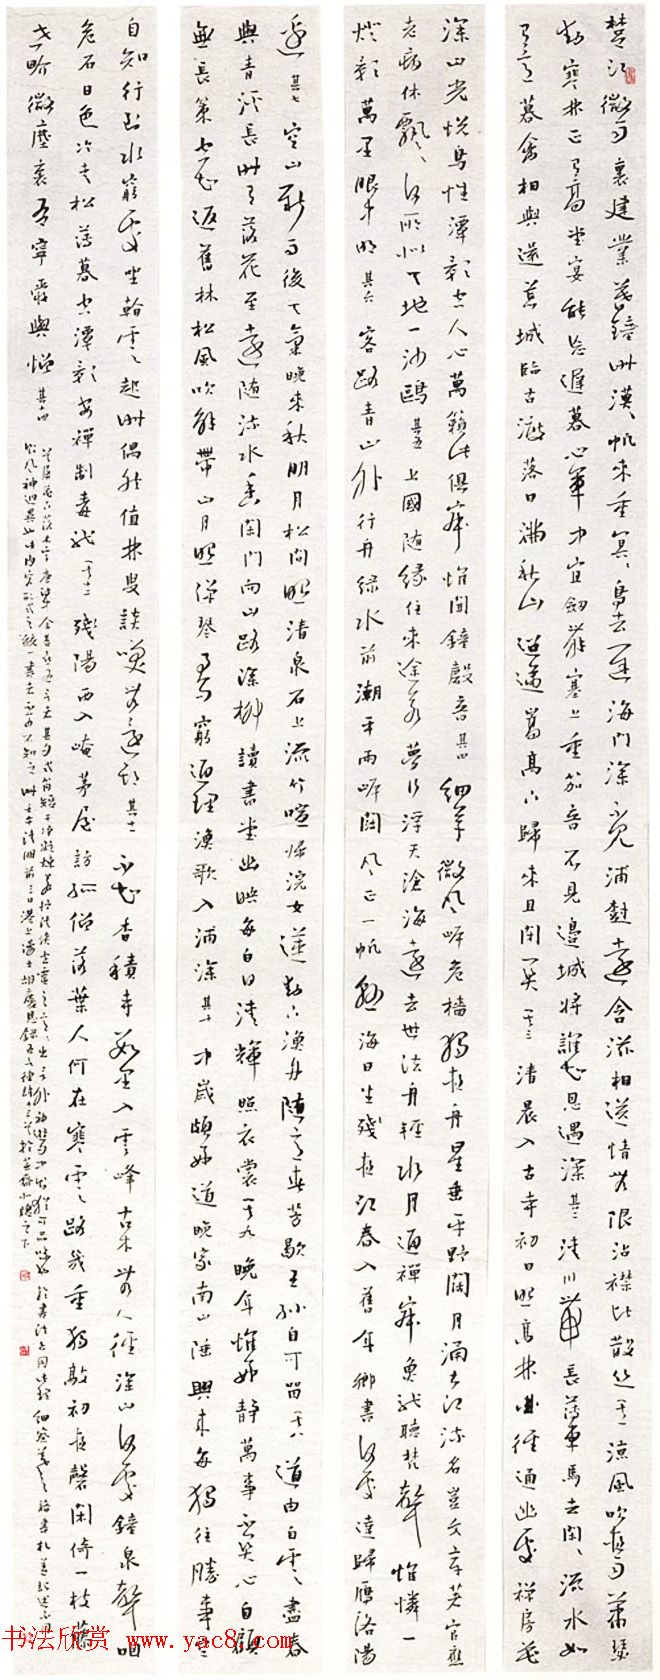 楚江微雨裏建業暮鐘時漠漠帆來重冥冥鳥去遲海門深不見浦樹遠含滋相送情無限沾襟比散絲其一涼風吹夜雨蕭瑟
動寒林正有高堂宴能忘遲暮心軍中宜劍舞塞上重笳音不見邊城將誰知恩遇深其二清川帶長薄車馬去閑閑流水如
有意暮禽相與還荒城臨古渡落日滿秋山迢遞嵩高下歸來且閉關其三清晨入古寺初日照高林曲徑通幽處禪房花
深山光悅鳥性潭影空人心萬籟此俱寂惟聞鐘磬音其四細草微風岸危檣獨夜舟星垂平野闊月涌大江流名豈文章著官應
老病休飄飄何所似天地一沙鷗其五上國隨緣住來途若夢行浮天滄海遠去世法舟輕水月通禪寂魚龍聽梵聲惟憐一
燈影萬里眼中明其六客路青山外行舟綠水前潮平兩岸闊風正一帆懸海日生殘夜江春入舊年鄉書何處達歸雁洛陽
邊其七空山新雨後天氣晚來秋明月松間照清泉石上流竹喧歸浣女蓮動下漁舟隨意春芳歇王孫自可留其八道由白雲盡春
與青溪長時有落花至遠隨流水香閑門向山路深柳讀書堂幽映每白日清輝照衣裳其九晚年惟好靜萬事不關心自顧
無長策空知返舊林松風吹解帶山月照彈琴君問窮通理漁歌入浦深其十中歲頗好道晚家南山陲興來每獨往勝事空
自知行到水窮處坐看雲起時偶然值林叟談笑無還期其十一不知香積寺數里入雲峰古木無人徑深山何處鐘泉聲咽
危石日色冷青松薄暮空潭影安禪制毒龍其十二殘陽西入崦茅屋訪孤僧落葉人何在寒雲路幾重獨敲初夜磬閑倚一枝藤
世界微塵裏吾寧愛與憎
书法欣赏 www.yac8.com